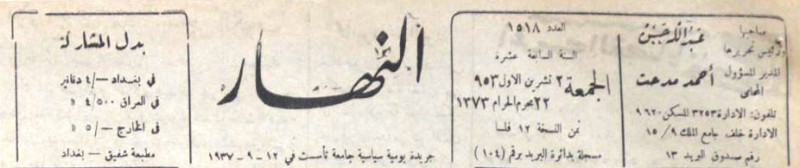 صاحبها
ورئيس تحريرها
عبدالله حسن
المدير المسؤول
المحامي
أحمد مدحت
تلفون: الادارة ٣٢٥٣ المسكن ٩٦٢٠
الادارة خلف جامع الملك ١٥/٩
رقم صندوق البريد ١٣
العدد ١٥١٨
السنة السابعة عشرة
الجمعة
٢ تشرين الاول ٩٥٣
٢٢ محرم الحرام ١٣٧٣
ثمن النسخة ١٢ فلسا
مسجلة بدائرة البريد برقم (١٠٤)
النهار
جريدة يومية سياسية جامعة تأسست في ١٢-٩-١٩٣٧
بدل المشاركة
في بغداد -/٤ دنانير
في العراق ٤/٥٠٠ »
في الخارج -/٥ »
مطبعة شفيق - بغداد